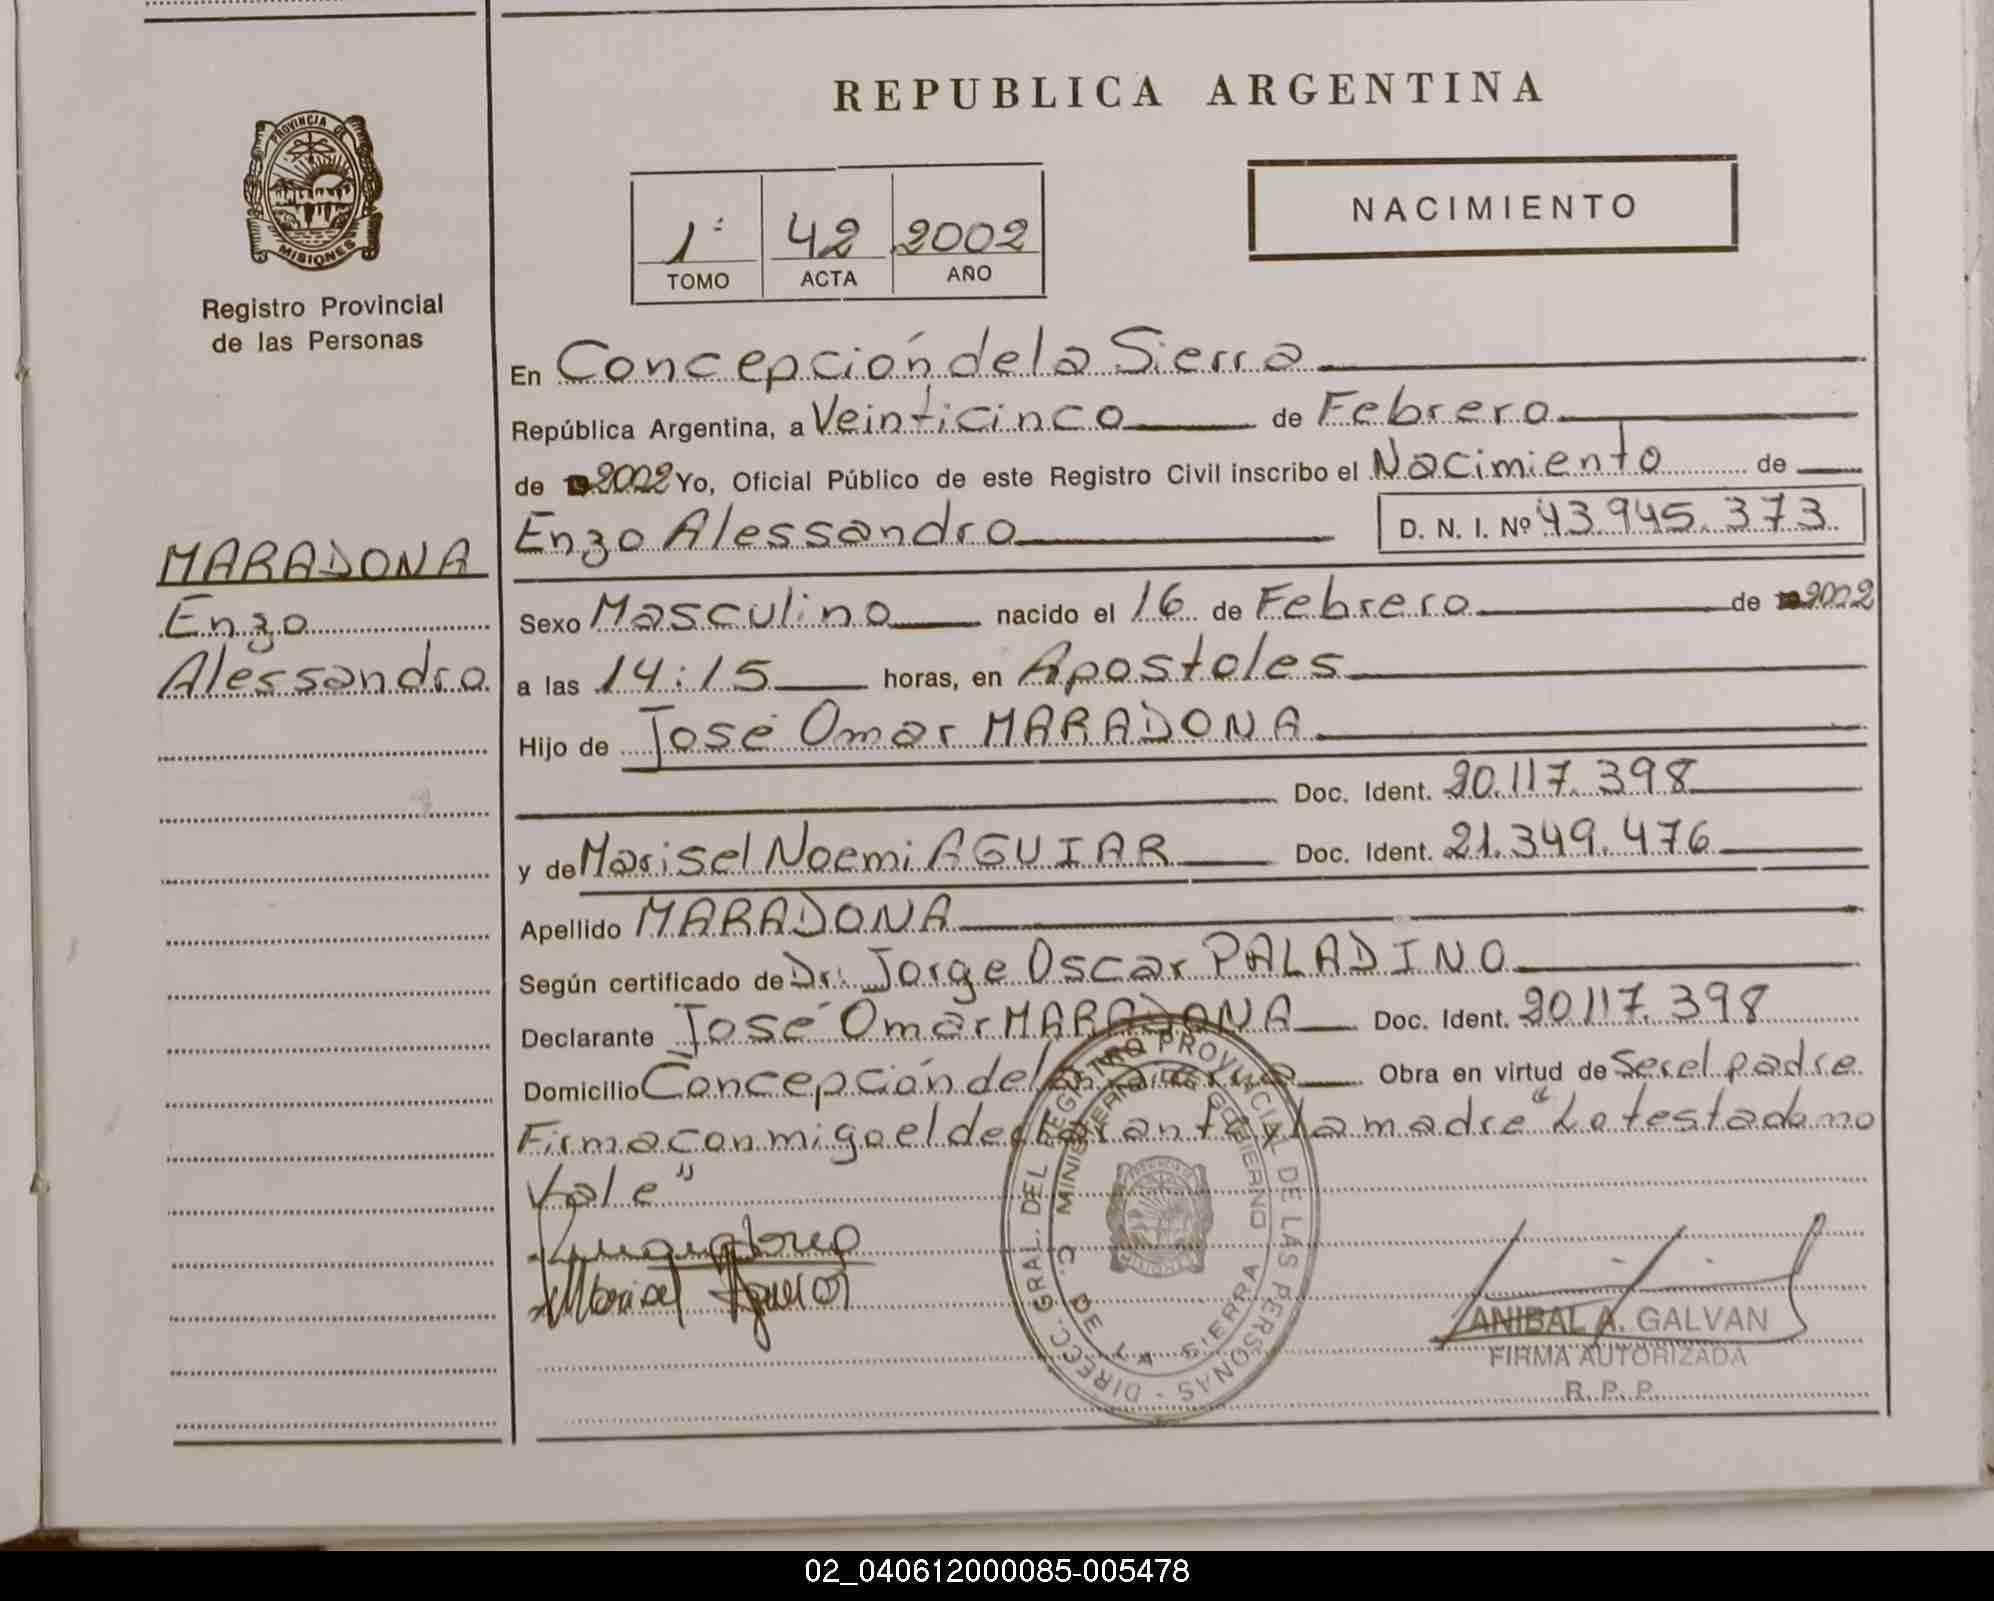 REPUBLICA ARGENTINA
PROVINCIA DE
MISIONES
Registro Provincial
de las Personas
1º 42 2002
TOMO ACTA AÑO
NACIMIENTO
En Concepción de la Sierra
República Argentina, a Veinticinco de Febrero
de 2002 Yo, Oficial Público de este Registro Civil inscribo el Nacimiento de
Enzo Alessandro D. N. I. Nº 43.945.373
MARADONA
Enzo
Alessandro
Sexo Masculino nacido el 16 de Febrero de 2002
a las 14:15 horas, en Apostoles
Hijo de José Omar MARADONA
Doc. Ident. 20.117.398
y de Marisel Noemi AGUIAR Doc. Ident. 21.349.476
Apellido MARADONA
Según certificado de Dr. Jorge Oscar PALADINO
Declarante José Omar MARADONA Doc. Ident. 20.117.398
Domicilio Concepción de la Sierra Obra en virtud de Ser el padre
Firma conmigo el declarante y la madre "Lo testado no
Vale"
Marisel Aguiar
DIRECC. GRAL. DEL REGISTRO PROVINCIAL DE LAS PERSONAS -
MINISTERIO DE GOBIERNO
C. DE LA SIERRA
ANIBAL A. GALVAN
FIRMA AUTORIZADA
R. P. P.
02_040612000085-005478